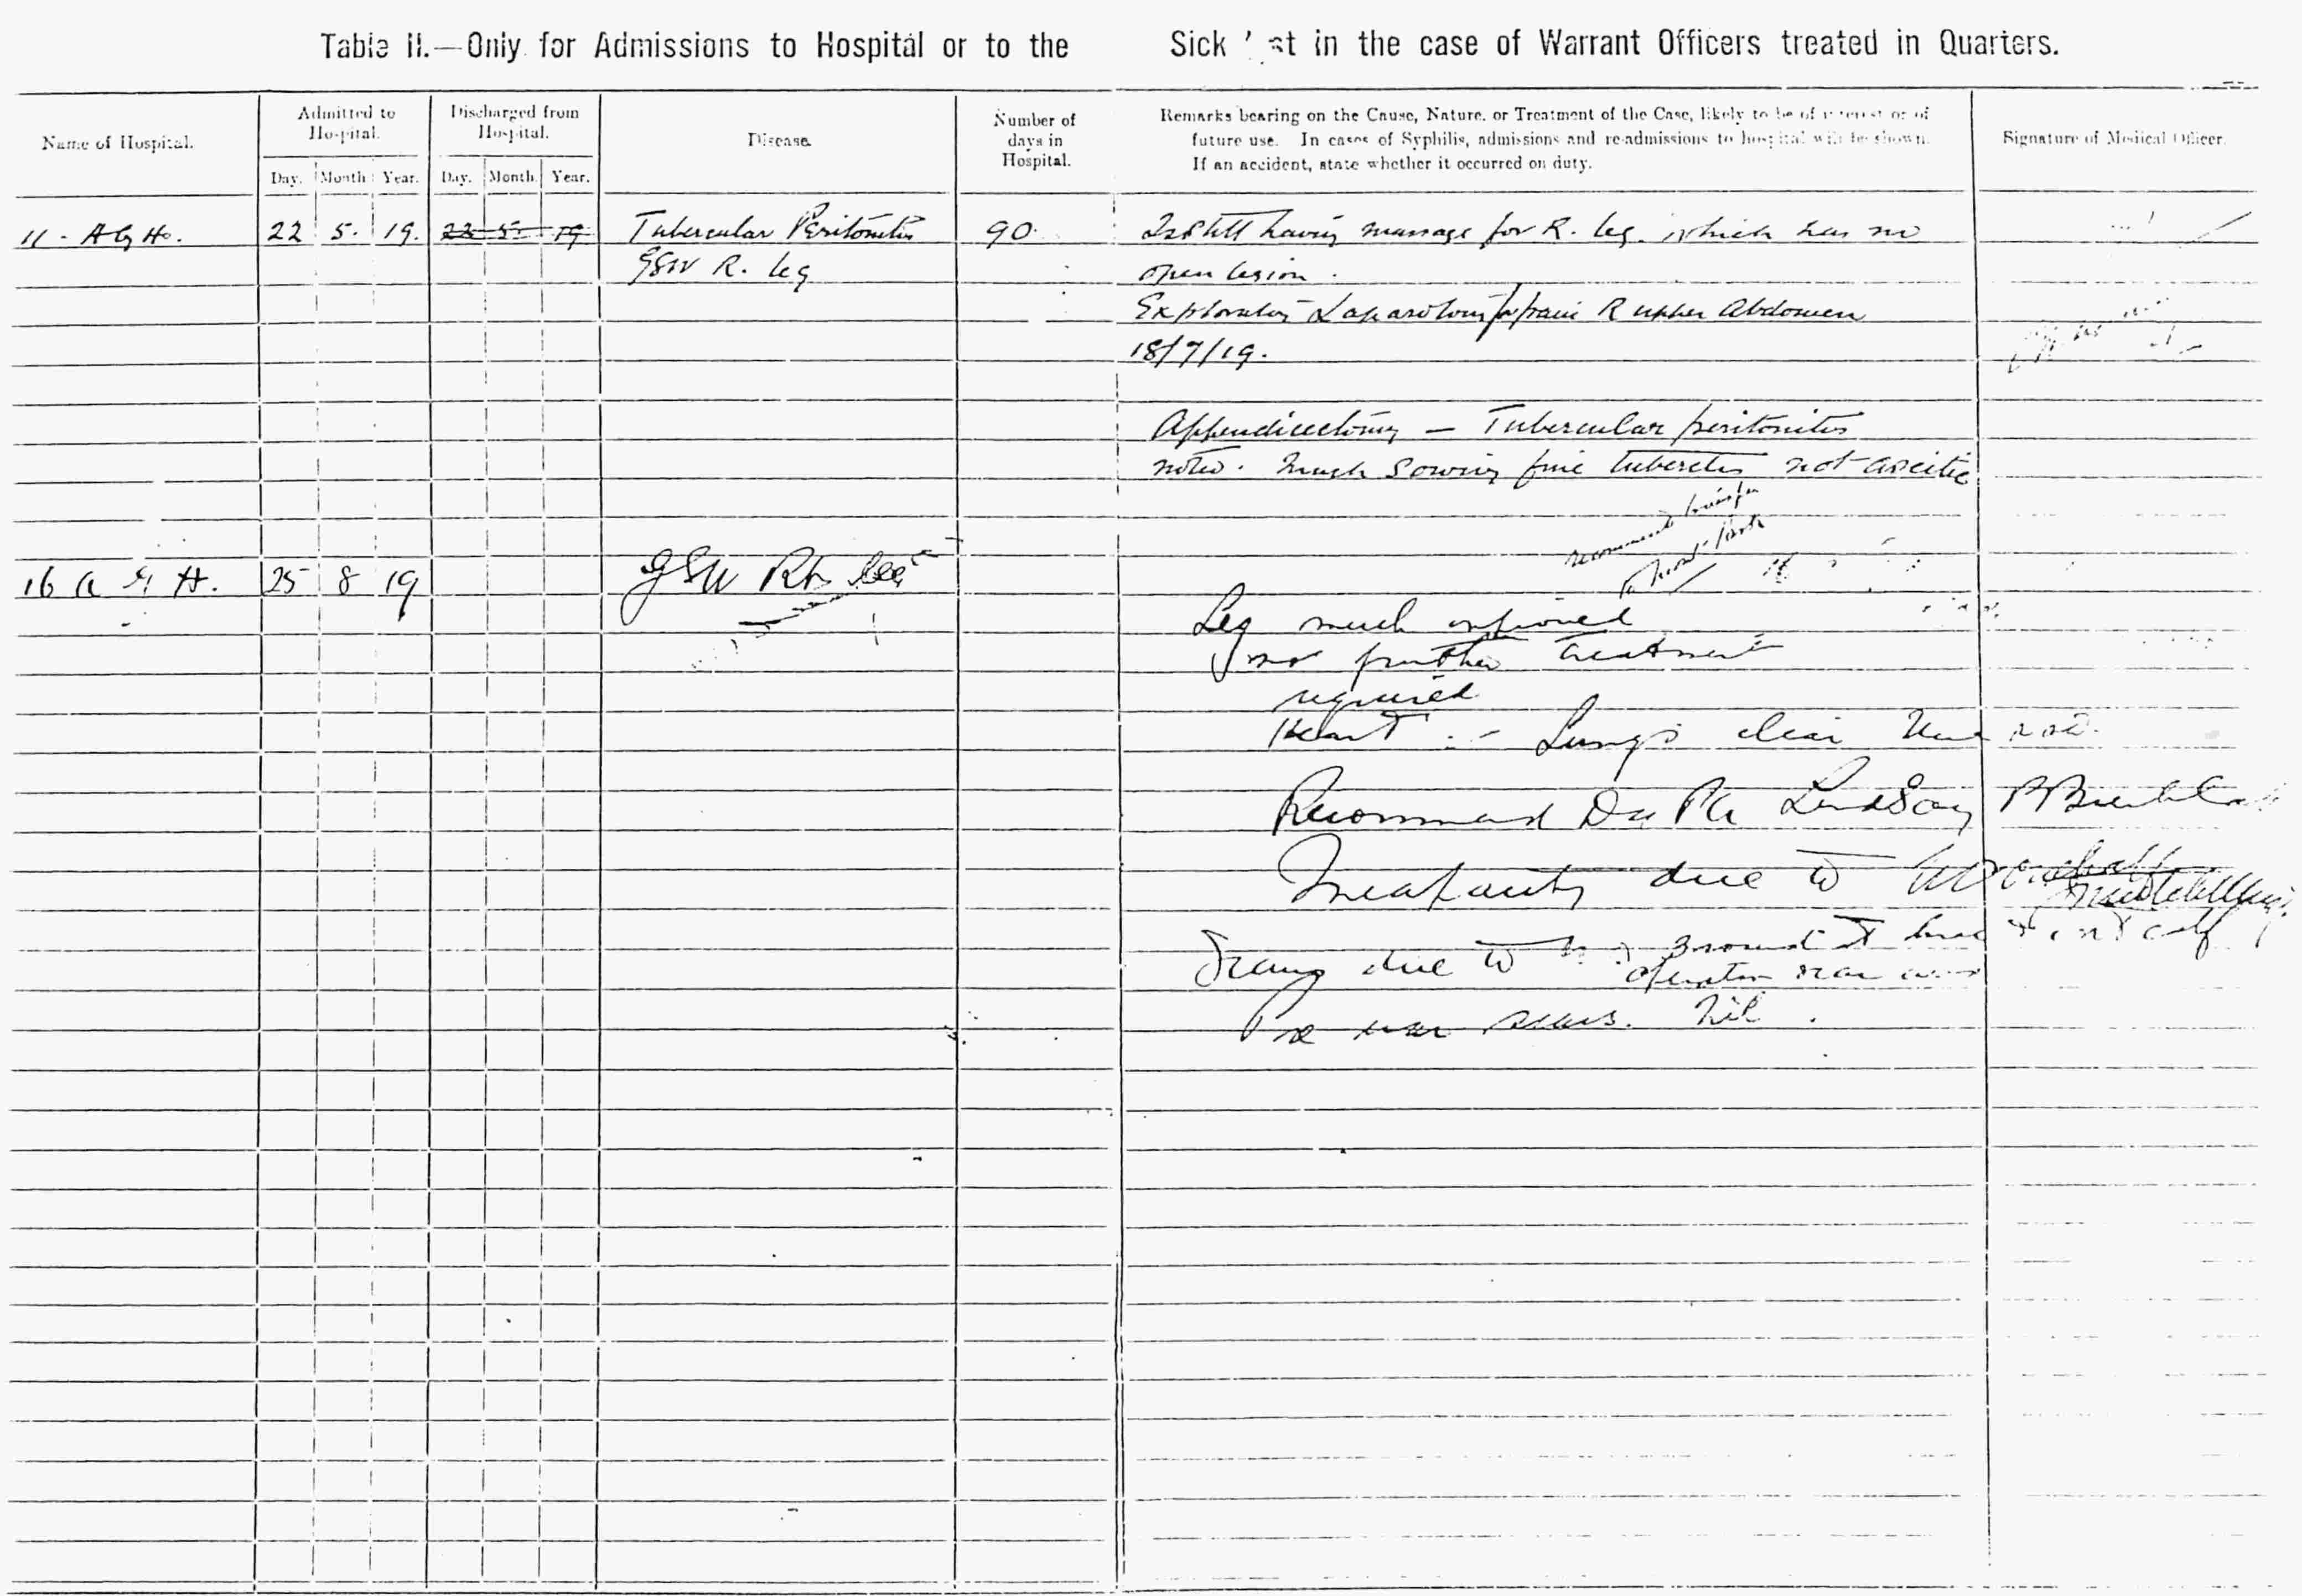 Table II.—Only for Admissions to Hospital or to the Sick st in the case of Warrant Officers treated in Quarters.
Name of Hospital.
Admitted to Hospital.
Discharged from Hospital.
Disease.
Number of days in Hospital.
Remarks bearing on the Cause, Nature, or Treatment of the Case, likely to be of interest or of
future use. In cases of Syphilis, admissions and re-admissions to hospital will be shown.
If an accident, state whether it occurred on duty.
Signature of Medical Officer.
Day. Month Year. Day. Month Year.
11 - AGH. 22 5. 19. 22 5 19 Tubercular Peritonitis 90 Still having massage for R. leg. which has no
GSW R. leg open lesion.
Exploratory Laparotomy for pain R upper Abdomen
18/7/19.
Appendicectomy — Tubercular peritonitis
noted. Much sowing fine tubercles not ascitic
recommend transfer
to
16 A G H. 25 8 19 GSW Rt leg
Leg much improved
no further treatment
required
Heart Lungs clear
Recommend Dis
Incapacity due to
due to wound
operation scar
Pre war scars. Nil.